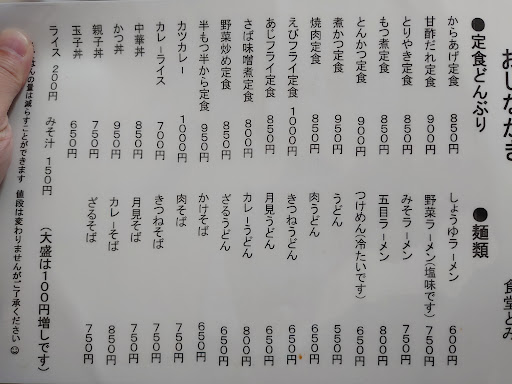 おしながき
食堂とみ
●定食どんぶり
からあげ定食 850円
甘酢だれ定食 900円
とりやき定食 850円
もつ煮定食 850円
とんかつ定食 900円
煮かつ定食 950円
焼肉定食 850円
えびフライ定食 1000円
あじフライ定食 850円
さば味噌煮定食 800円
野菜炒め定食 850円
半もつ半から定食 950円
カツカレー 1000円
カレーライス 700円
中華丼 850円
かつ丼 950円
親子丼 750円
玉子丼 650円
ライス 200円 みそ汁 150円
●麺類
しょうゆラーメン 600円
野菜ラーメン(塩味です) 750円
みそラーメン 750円
五目ラーメン 800円
つけめん(冷たいです) 650円
うどん 550円
肉うどん 650円
きつねうどん 650円
月見うどん 650円
カレーうどん 800円
ざるうどん 650円
かけそば 650円
肉そば 750円
きつねそば 750円
月見そば 750円
カレーそば 850円
ざるそば 750円
(大盛は100円増しです)
はんの量は減らすことができます 値段は変わりませんがご了承ください☺